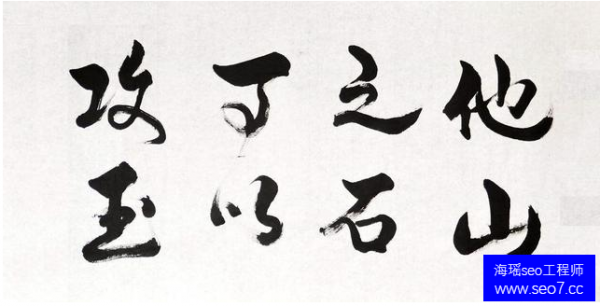 他山
之石
可以
攻玉
海瑶seo工程师
www.seo7.cc